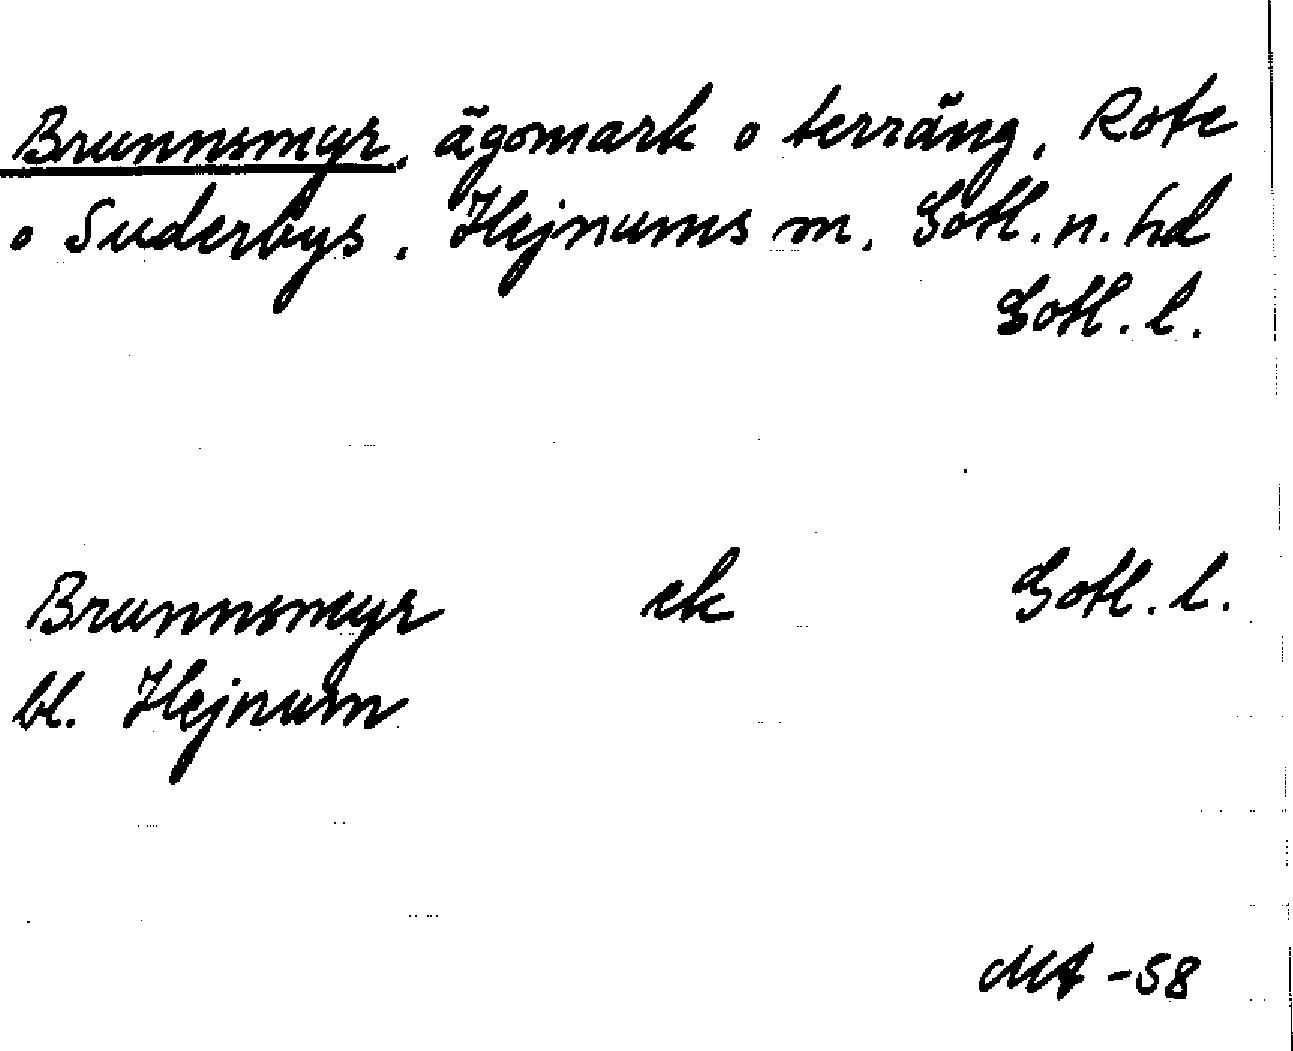 Brunnsmyr, ägomark o terräng, Rote
o Suderbys, Hejnums m, Gotl. n. hd
Gotl. l.
Brunnsmyr ek Gotl. l.
bl. Hejnum
MA -58